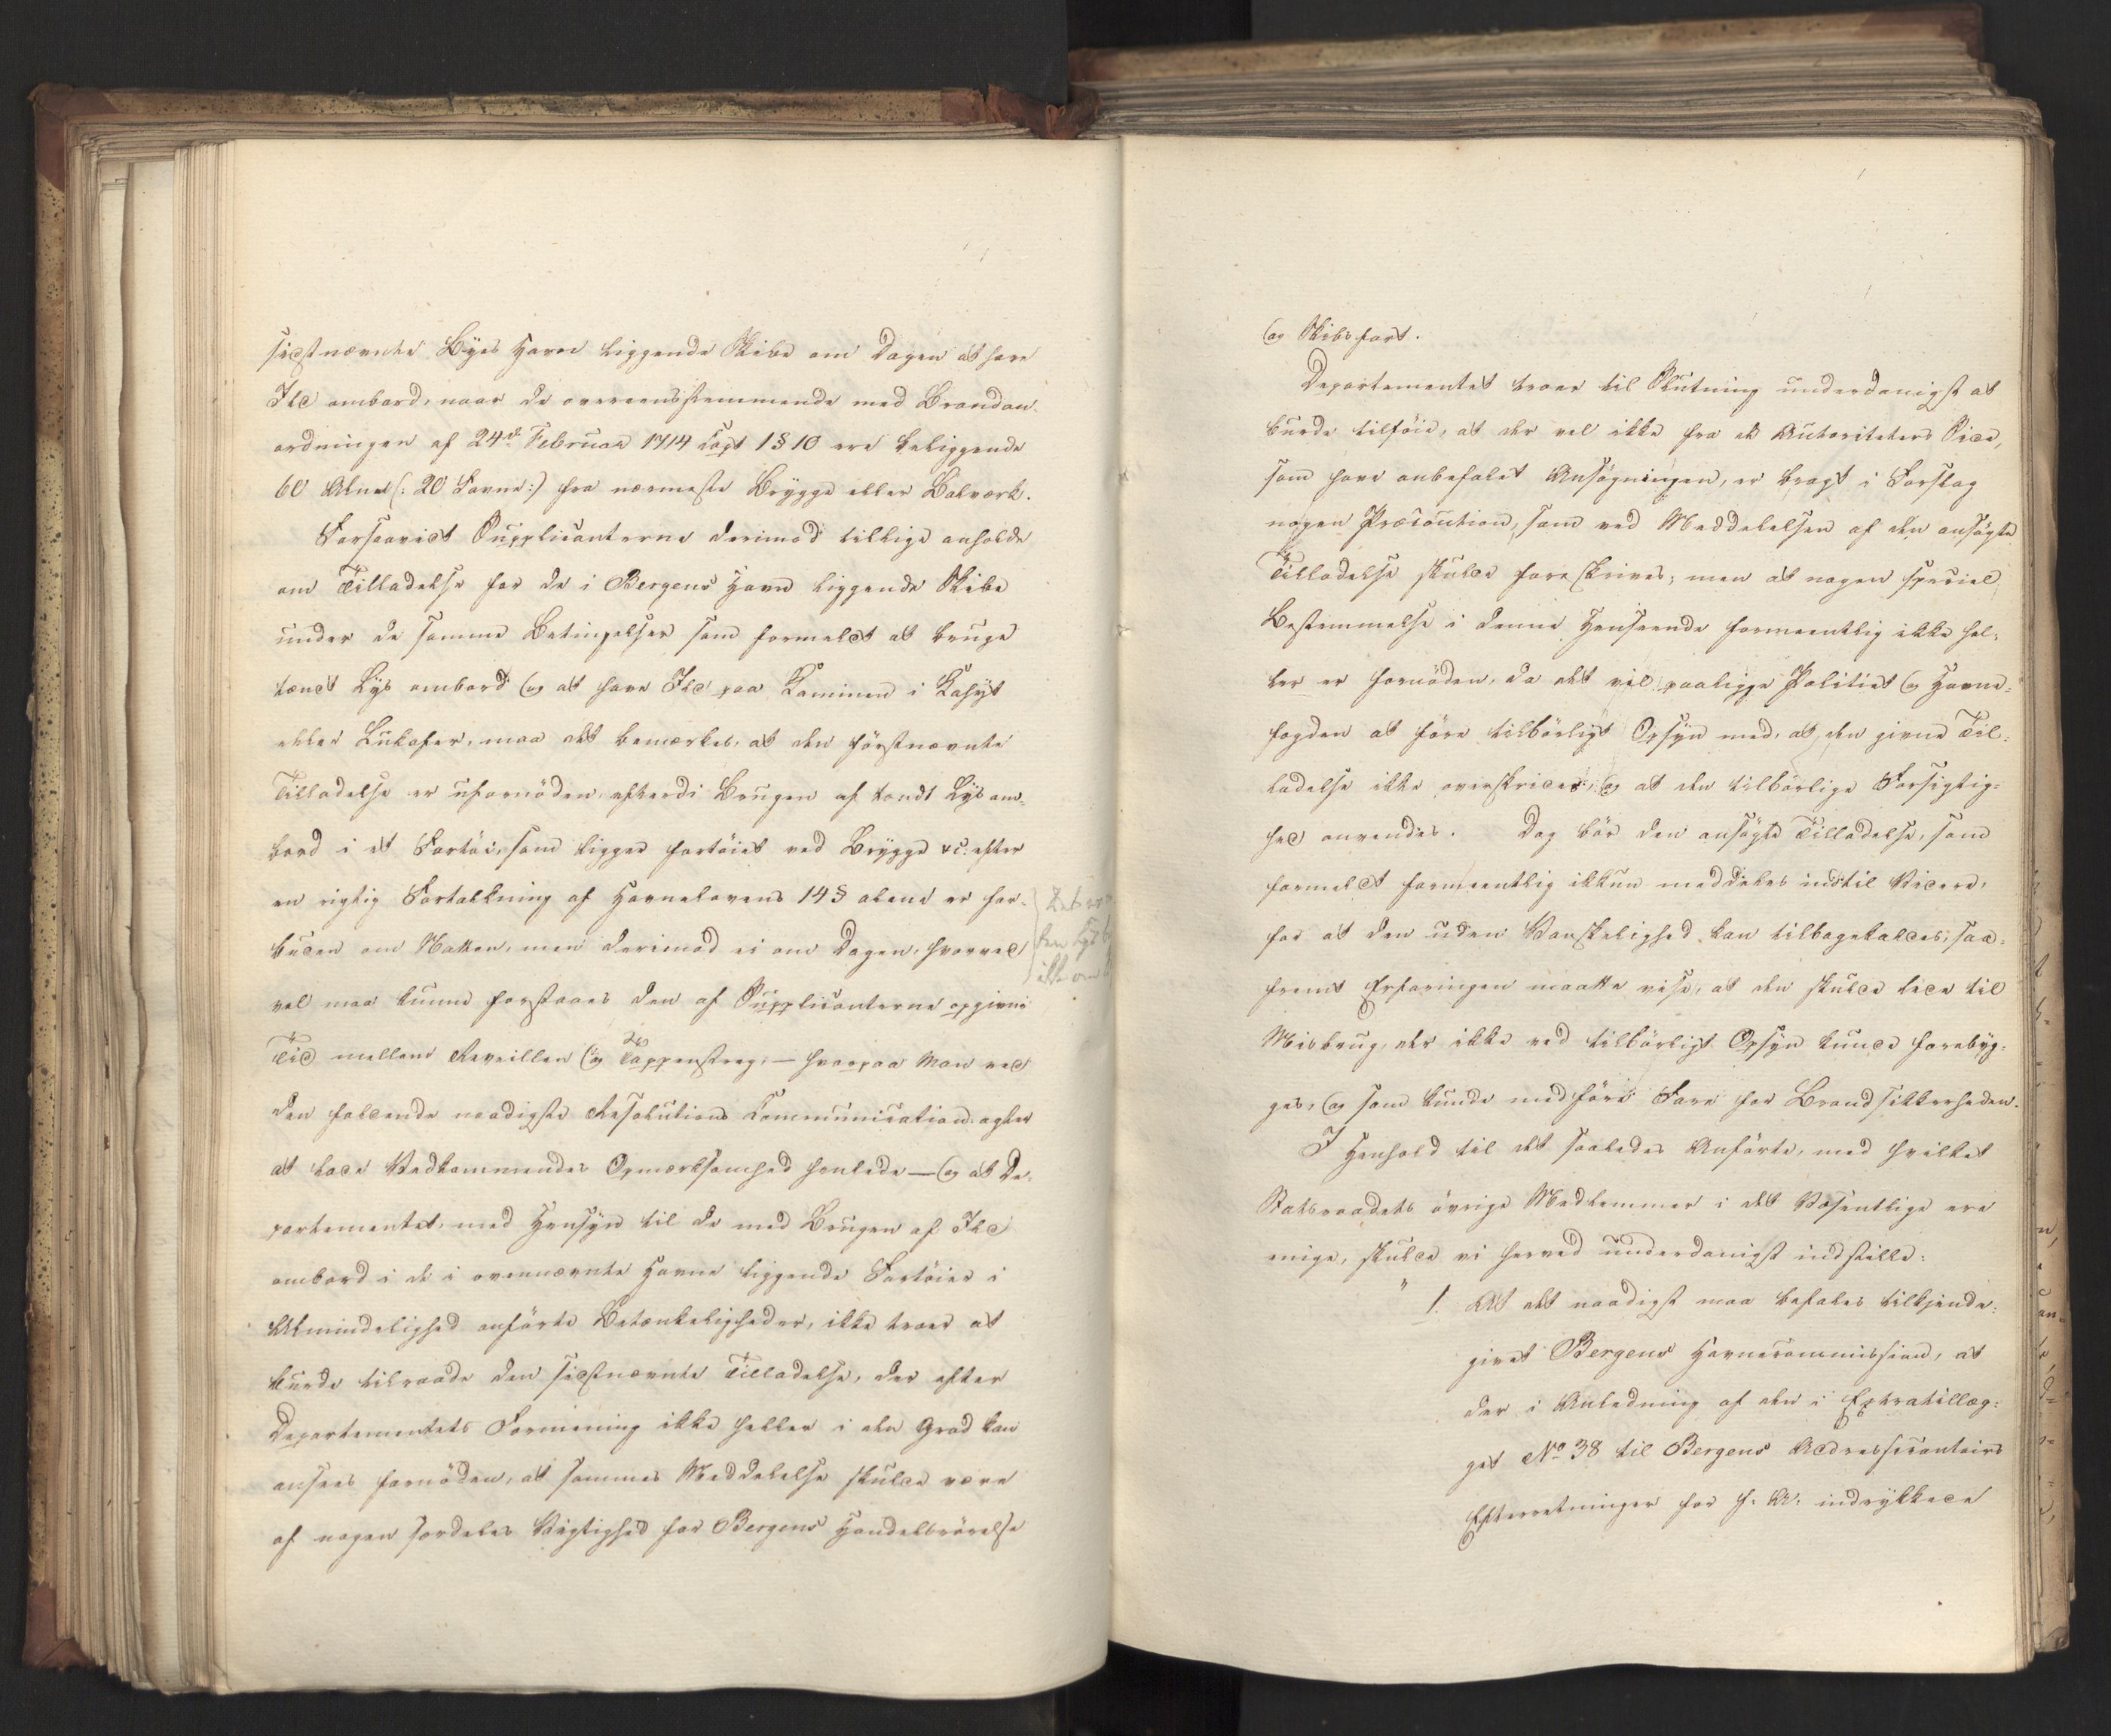 sidstnævnte Byes Havn liggende Skibe om Dagen at have
Ild ombord, naar de overeensstemmende med Brandan-
ordningen af 24de Februar 1714 Capt 1 § 10 ere beliggende
60 Alnel (: 20 Favne:) fra nærmeste Brygge eller Bolværk.
Forsaavidt Supplicanterne derimod tillige anholde
om Tilladelse for de i Bergens Havn liggende Skibe
under de samme Betingelser som formeldt at bruge
tændt Lys ombord og at have Ild paa Kaminen i Kahyt
eller Lukafer, maa det bemærkes, at den förstnævnte
Tilladelse er ufornöden, efterdi Brugen af tændt Lys om-
bord i et Fartöi, som ligger fortöiet ved Brygge &c. efter
en rigtig Fortolkning af Havnelovens 14 § alene er for-
buden om Natten, men derimod ei om Dagen, hvorved
vel maa kunne forstaaes den af Supplicanterne opgivne
Tid mellem Reveillen og Tappenstreg; – hvorpaa Man ved
den faldende naadigste Resolutions Communication agter
at lade Vedkommendes Opmærksomhed henlede – og at De-
partementet, med Hensyn til de med Brugen af Ild
ombord i de i ovennævnte Havne liggende Fartöier i
Almindelighed anförte Betænkeligheder, ikke troer at
burde tilraade den sidstnævnte Tilladelse, der efter
Departementets Formening ikke heller i den Grad kan
ansees fornöden, at sammes Meddelelse skulde være
af nogen særdeles Vigtighed for Bergens Handelsrörelse
og Skibsfart.
Departementet troer til Slutning underdanigst at
burde tilföie, at der vel ikke fra de Autoriteters Side,
som have anbefalet Ansögningen, er bragt i Forslag
nogen Præcaution, som ved Meddelelsen af den ansögte
Tilladelse skulde foreskrives; men at nogen speciel
Bestemmelse i denne Henseende formeentlig ikke hel-
ler er fornöden, da det vil paaligge Politiet og Havne-
fogden at före tilbörligt Opsyn med, at den givne Til-
ladelse ikke overskrides, og at den tilbörlige Forsigtig-
hed anvendes. Dog bör den ansögte Tilladelse, som
formeldt formeentlig ikkun meddeles indtil Videre,
for at den uden Vanskelighed kan tilbagekaldes, saa-
fremt Erfaringen maatte vise, at den skulde lede til
Misbrug, der ikke ved tilbörligt Opsyn kunde forebyg-
ges, og som kunde medföre Fare for Brandsikkerheden.
I Henhold til det saaledes Anförte, med hvilket
Statsraadets övrige Medlemmer i det Væsentlige ere
enige, skulde vi herved underdanigst indstille:
" 1. At det naadigst maa befales tilkjende-
givet Bergens Havnecommission, at
der i Anledning af den i Extratillæg-
get No 38 til Bergens Addressecontoirs
Efterretninger for f. A. indrykkede